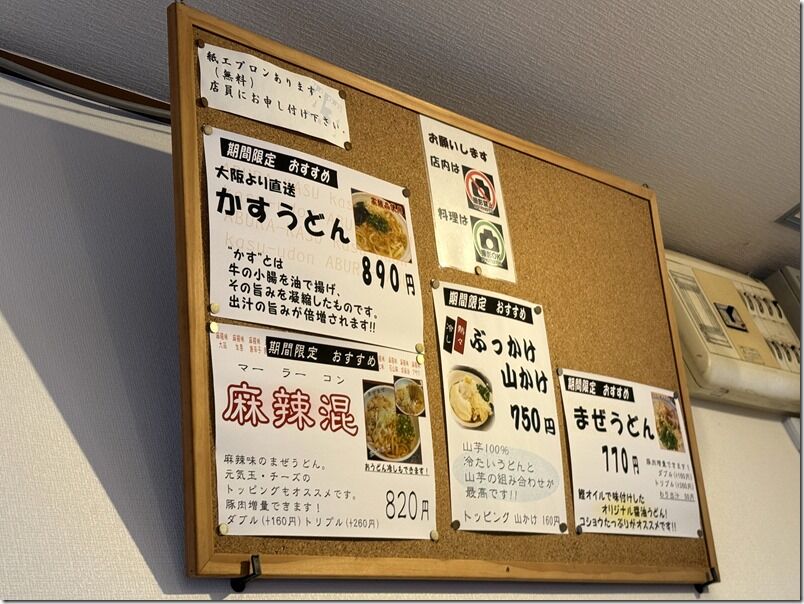 紙エプロンあります。
(無料)
店員にお申し付け下さい。
お願いします
店内は
料理は
撮影OK
期間限定 おすすめ
大阪より直送
かすうどん
890円
"かす"とは
牛の小腸を油で揚げ、
その旨みを凝縮したものです。
出汁の旨みが倍増されます!!
期間限定 おすすめ
マーラーコン
麻辣混
おうどん冷しもできます!
麻辣味のまぜうどん。
元気玉・チーズの
トッピングもオススメです。
豚肉増量できます!
ダブル(+160円)トリプル(+260円)
820円
期間限定 おすすめ
冷し
熱々
ぶっかけ
山かけ
750円
山芋100%
冷たいうどんと
山芋の組み合わせが
最高です!!
トッピング 山かけ 160円
期間限定 おすすめ
まぜうどん
770円
豚肉増量できます!
ダブル(+160円)
トリプル(+260円)
鰹オイルで味付けした
オリジナル醤油うどん!
コショウたっぷりがオススメです!!